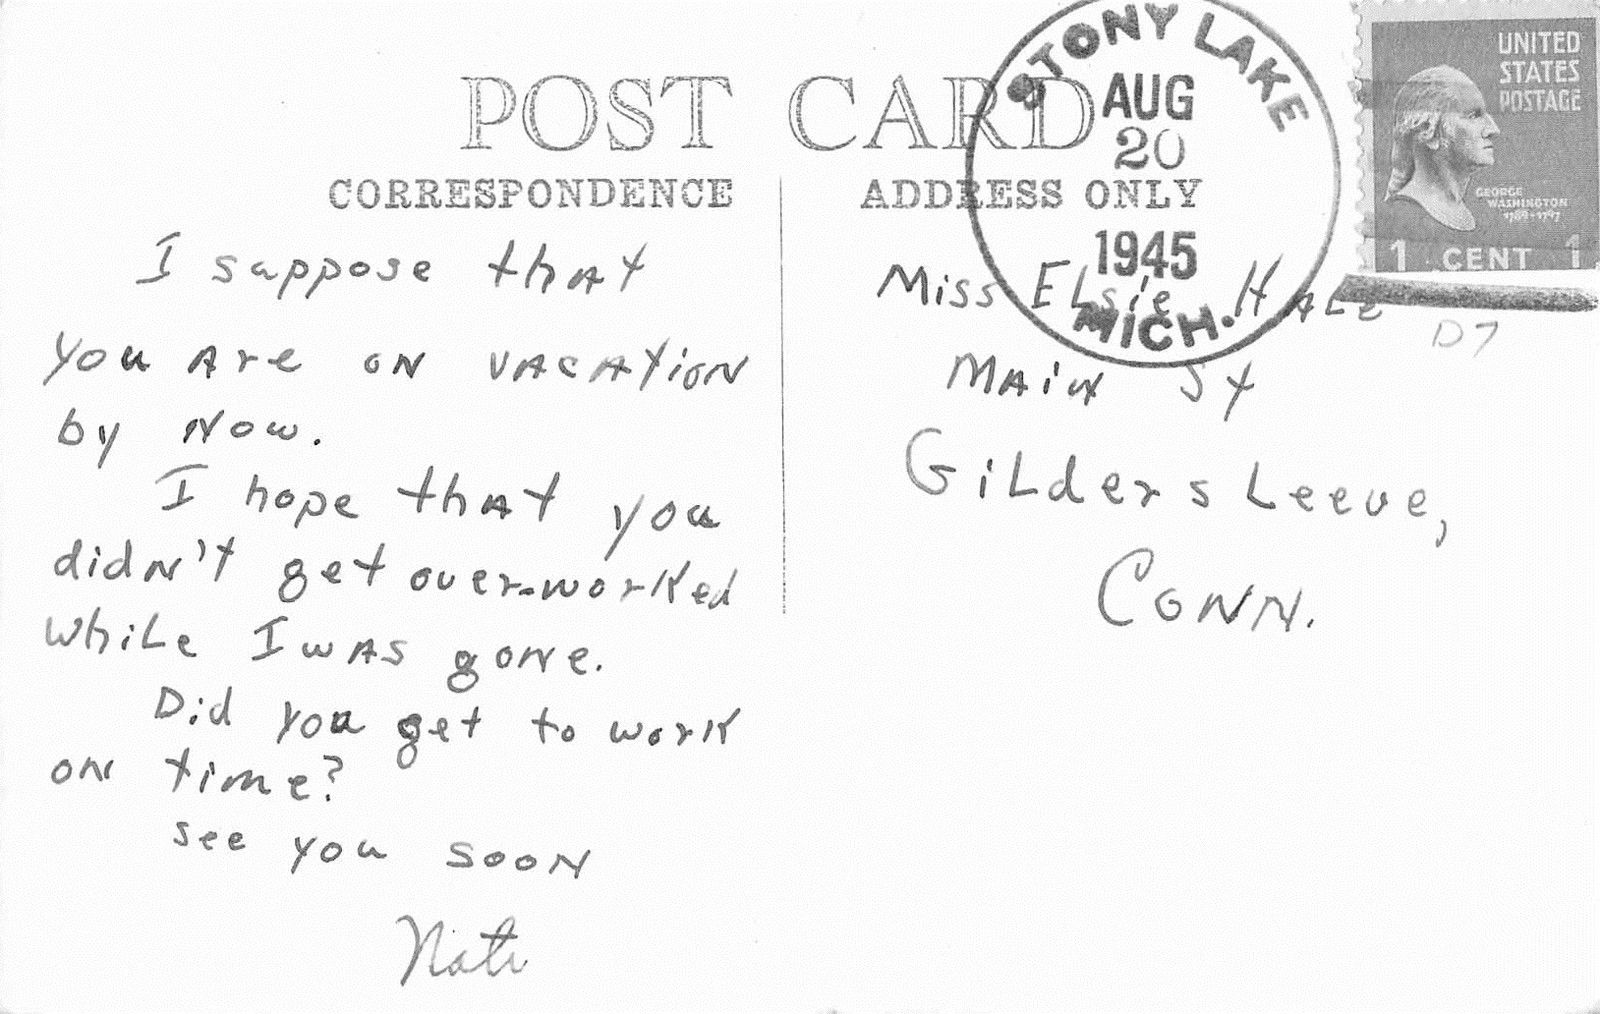 POST CARD
CORRESPONDENCE
ADDRESS ONLY
STONY LAKE
AUG
20
1945
MICH.
UNITED
STATES
POSTAGE
GEORGE
WASHINGTON
1789-1797
1 CENT 1
D7
I suppose that
you are on vacation
by now.
I hope that you
didn't get over-worked
while I was gone.
Did you get to work
on time?
see you soon
Nate
Miss Elsie Hale
Main St
Gildersleeve,
Conn.